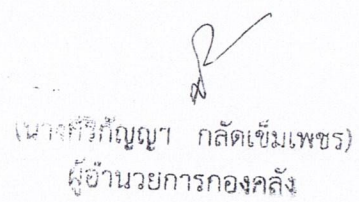 (นางศิริกัญญา กลัดเข็มเพชร)
ผู้อำนวยการกองคลัง